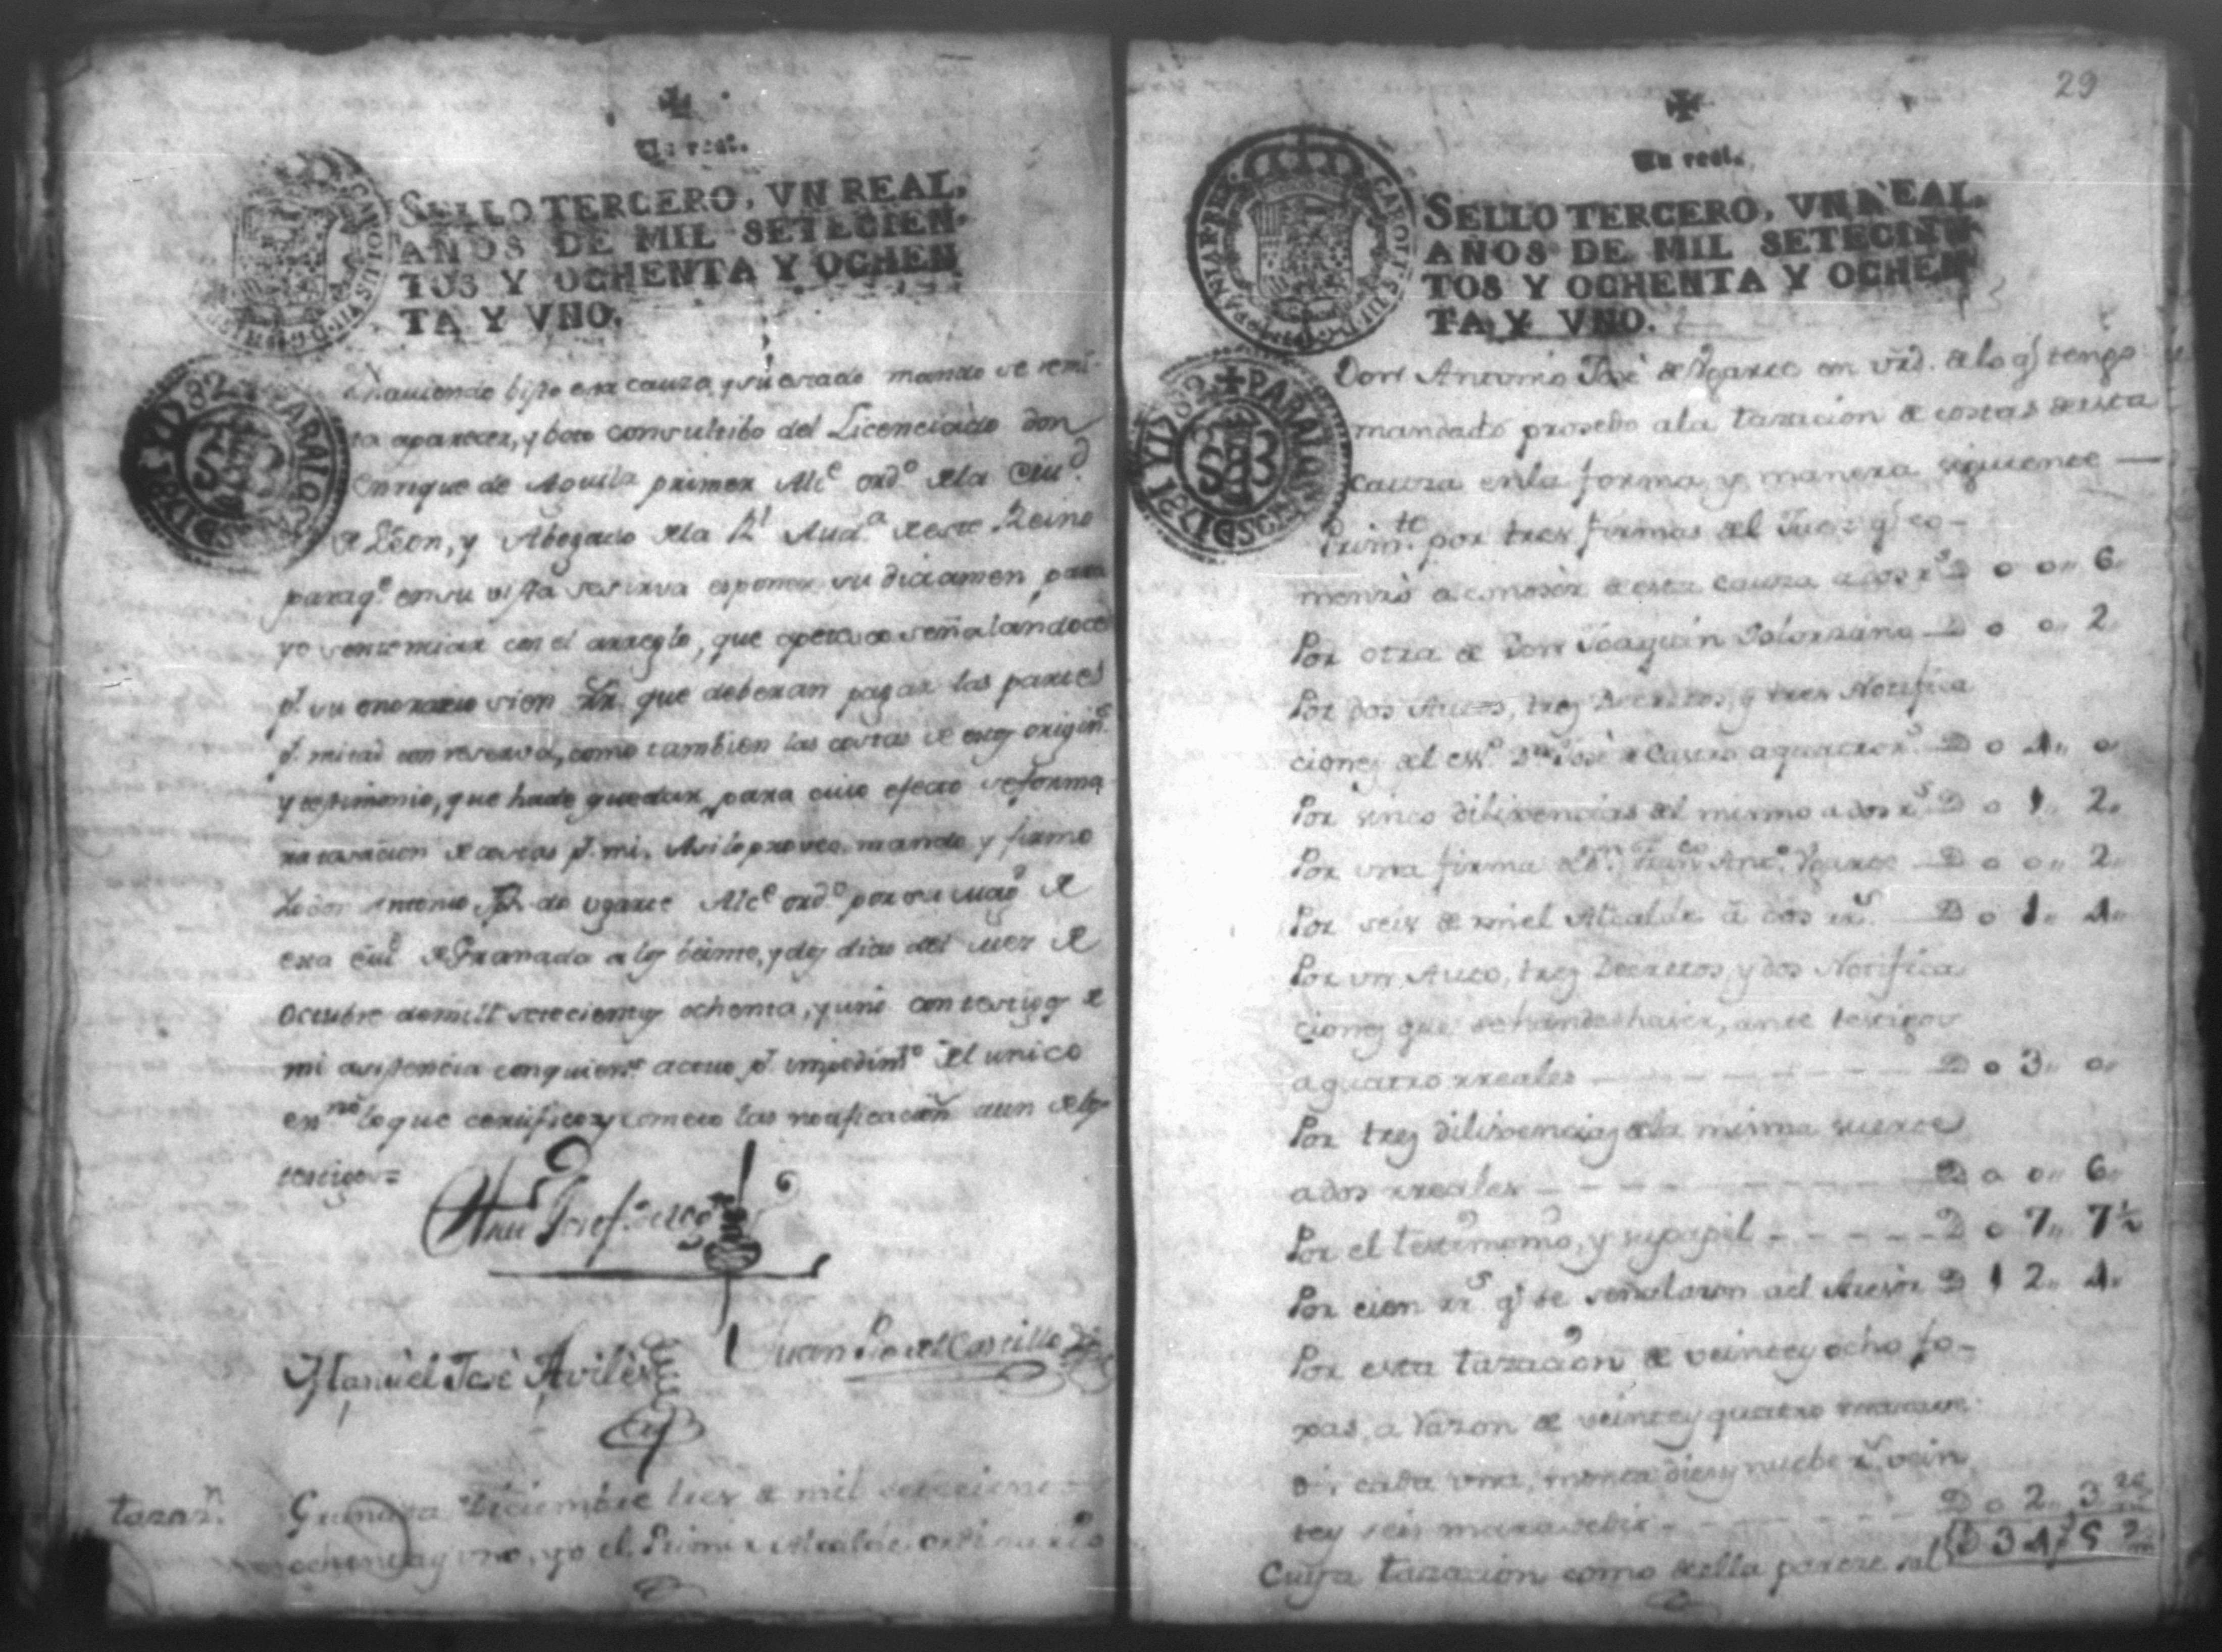 Un real.
SELLO TERCERO, VN REAL,
AÑOS DE MIL SETECIEN-
TOS Y OCHENTA Y OCHEN
TA Y VNO.
haviendo bisto esta causa y su estado mando se remi-
ta aparecer, y boto consultibo del Licenciado don
Enrique de Aguila primer Alc.e ord.o dela Ciu.d
de Leon, y Abogado dela R.l Aud.a de este Reino
paraq.e en su vista se sirva esponer su dictamen para
yo sentenciar con el arreglo, que apetesco señalandoce
p.r su onorario sien rr.s que deberan pagar las partes
p.r mitad con reserva, como tambien las costas de estos origin.s
y testimonio, que hade quedar, para cuio efecto se forma
ra tasacion de costas p.r mi. Asi lo proveo, mando, y firmo
Yo don Antonio Jph de Ugarte Alc.e ord.o por su Mag.d de
esta Ciu.d de Granada a los beinte, y dos dias del mes de
Octubre demill setecientos ochenta, y uno con testigos de
mi asistencia con quienes actuo p.r impedim.to del unico
es.no lo que certifico, y cometo las notificacion.s a un delos
testigos=
Ant.o Josef de Ug.te
Manuèl Josè Avilès
Juan Pio del Castillo
tazaz.n
Granada Diciembre tres de mil setecientos
ochenta y uno, yo el Primer Alcalde ordinario
29
Un real.
SELLO TERCERO, VN REAL.
AÑOS DE MIL SETECIEN-
TOS Y OCHENTA Y OCHEN
TA Y VNO.
Don Antonio Josè de Ugarte en vrd. delo q.e tengo
mandado prosedo ala tazacion de costas de esta
cauza enla forma, y manera siguiente —
Prim.te por tres firmas del Juez q.e co-
menzò a conoser de esta cauza a dos r.s D o o,, 6,,
Por otra de Don Joaquin Solorzano — D o o,, 2
Por dos Autos, tres Decretos, y tres Notifica
ciones al ess.o D.n Josè de Castro a quatro r.s D o 4,, o
Por sinco dilixencias del mismo a dos r.s D o 1,, 2,,
Por una firma de D.n Fran.co Ant.o Ugarte — D o o,, 2,,
Por seis de mi el Alcalde â dos rr.s — D o 1,, 4,,
Por un Auto, tres Decretos, y dos Notifica
ciones que se han de haser, ante testigos
a quatro rreales — D o 3,, o,,
Por tres dilixencias dela misma suerte
a dos rreales — D o o,, 6,,
Por el testimonio, y su papel — D o 7,, 7½
Por cien rr.s q.e se señalaron al Asesor D 1 2,, 4,,
Por esta tazacion de veinte y ocho fo-
xas, a razon de veinte y quatro marave
dis cada una, monta dies y nuebe r.s vein
te y seis maravedis — D o 2,, 3 26
Cuya tazacion como de ella parece sal